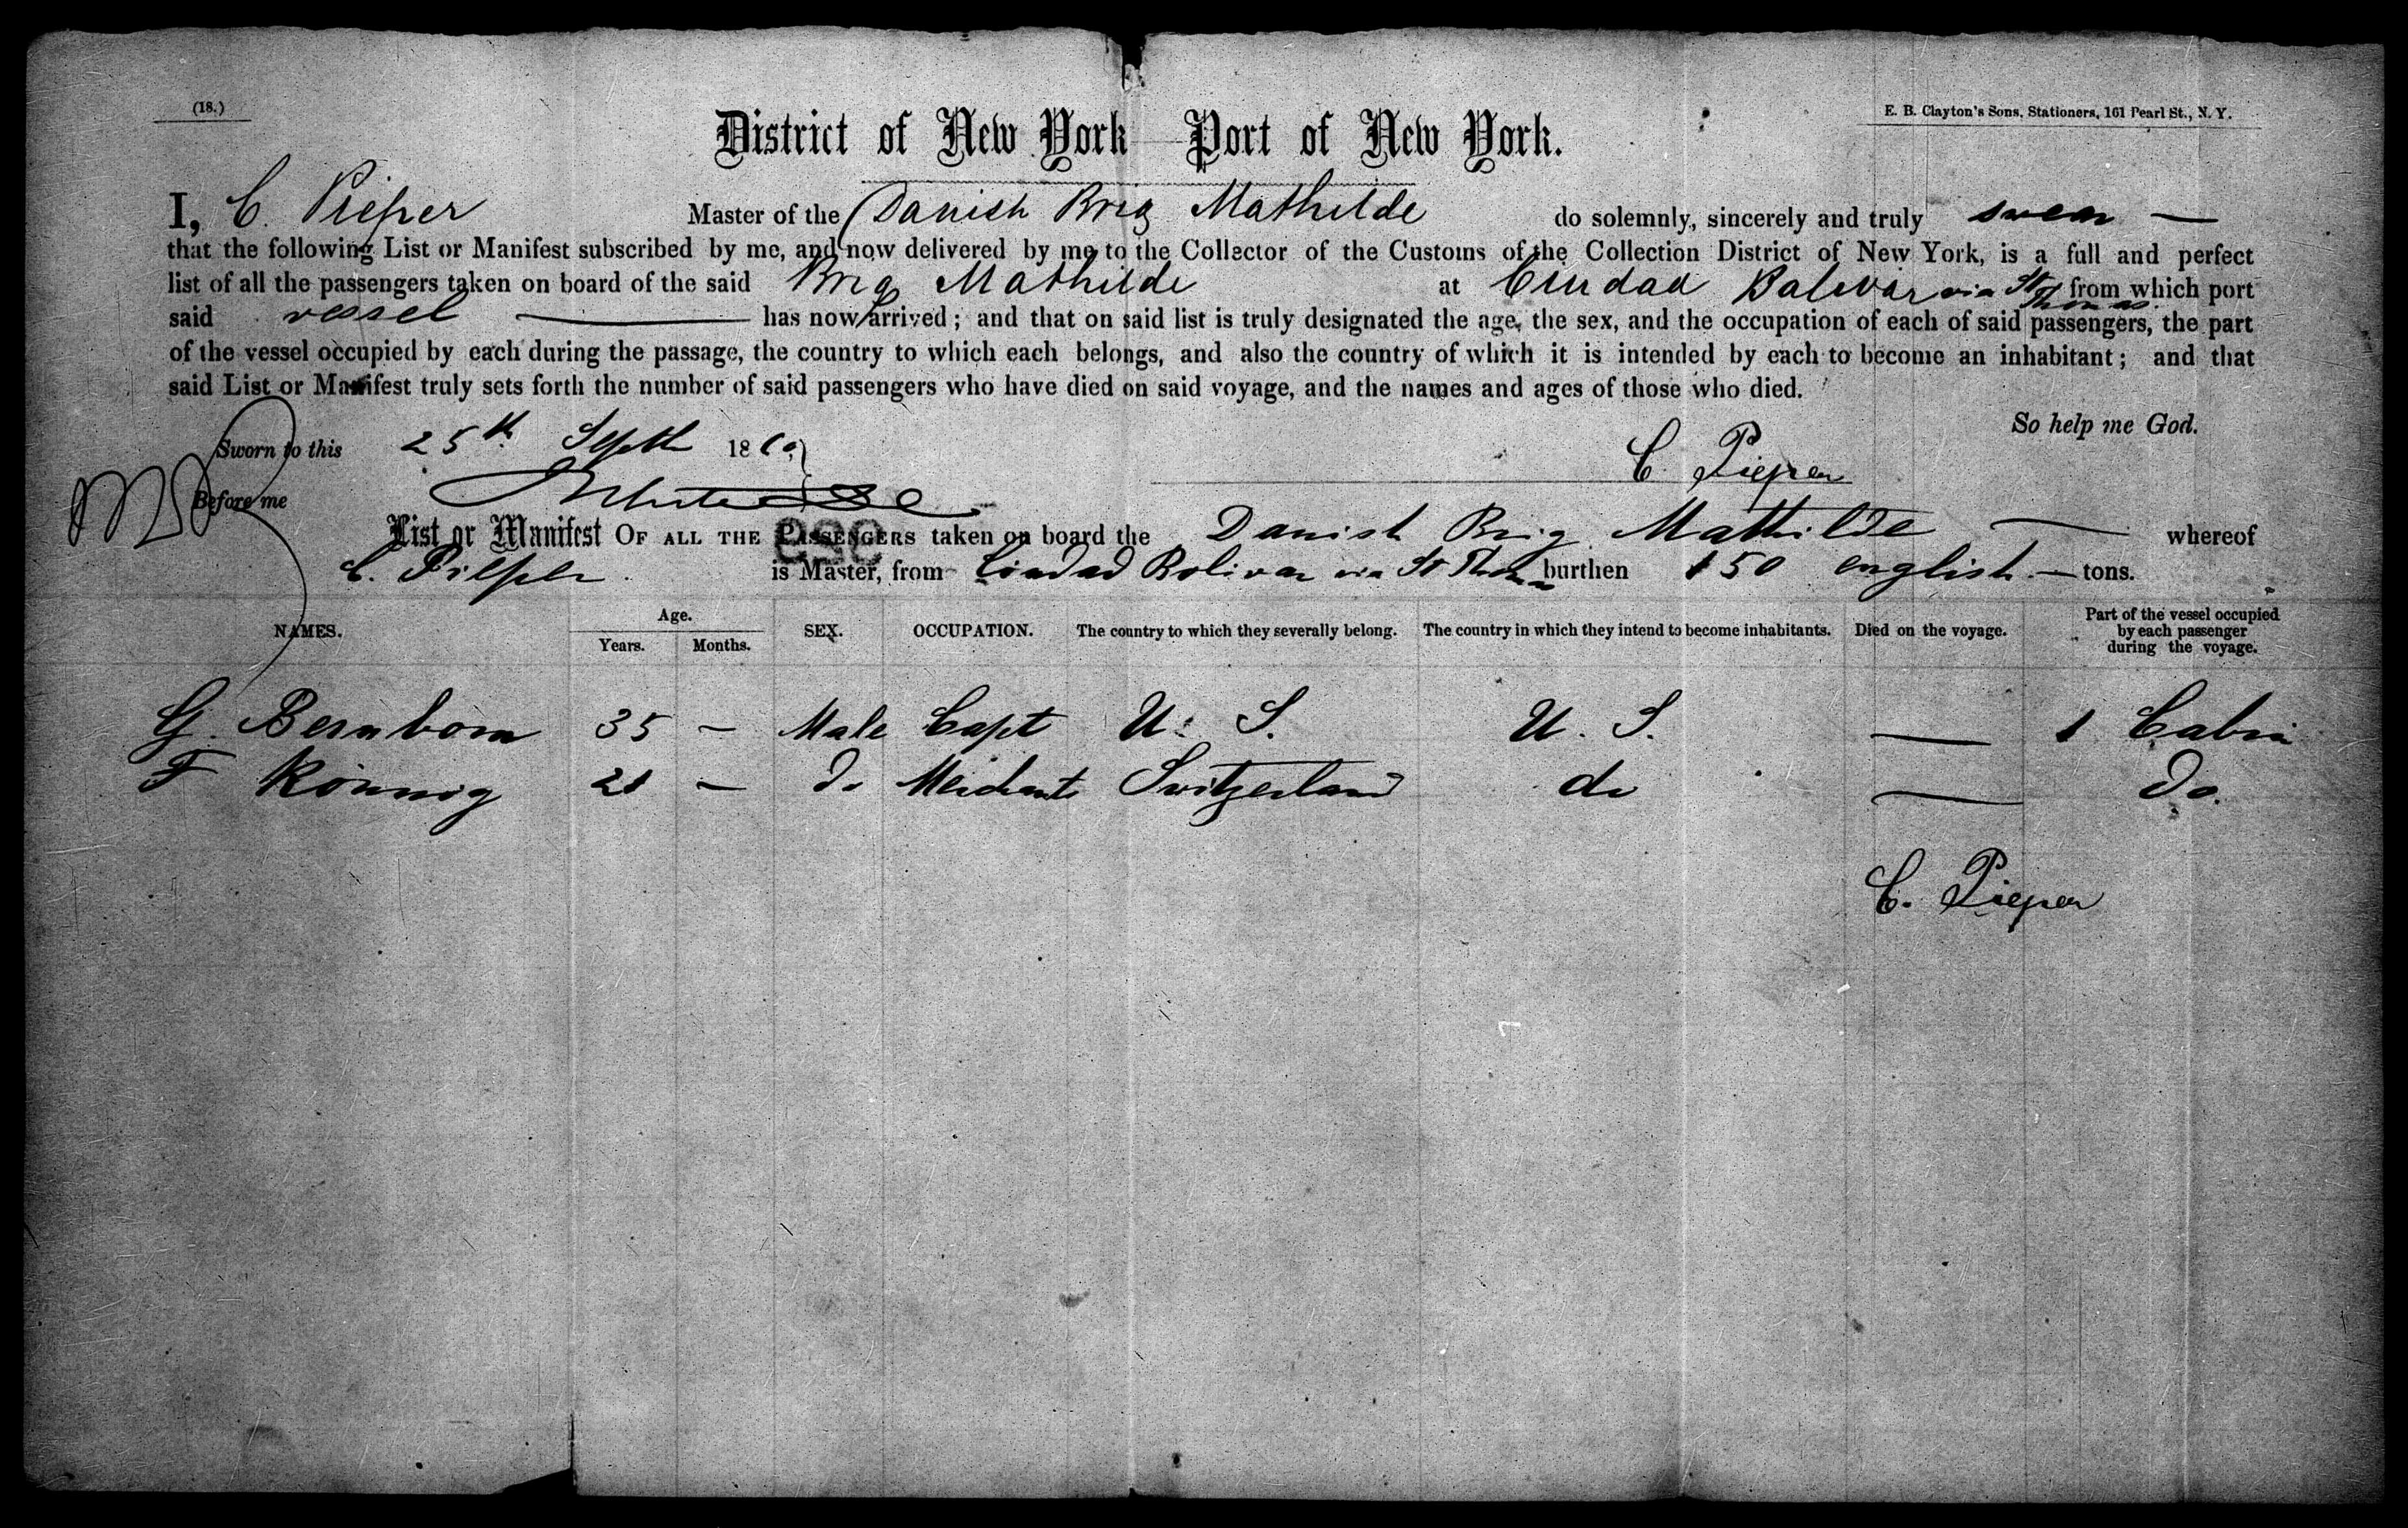 (18.)
E. B. Clayton's Sons, Stationers, 161 Pearl St., N. Y.
District of New York Port of New York.
I, C. Pieper Master of the Danish Brig Mathilde do solemnly, sincerely and truly swear —
that the following List or Manifest subscribed by me, and now delivered by me to the Collector of the Customs of the Collection District of New York, is a full and perfect
list of all the passengers taken on board of the said Brig Mathilde at Ciudad Bolivar via St Thomas from which port
said vessel — has now arrived; and that on said list is truly designated the age, the sex, and the occupation of each of said passengers, the part
of the vessel occupied by each during the passage, the country to which each belongs, and also the country of which it is intended by each to become an inhabitant; and that
said List or Manifest truly sets forth the number of said passengers who have died on said voyage, and the names and ages of those who died.
So help me God.
Sworn to this 25th Sept 186
C. Pieper
Before me
List or Manifest OF ALL THE PASSENGERS taken on board the Danish Brig Mathilde — whereof
C. Pieper is Master, from Ciudad Bolivar via St Thomas burthen 150 english — tons.
NAMES. Age. Years. Months. SEX. OCCUPATION. The country to which they severally belong. The country in which they intend to become inhabitants. Died on the voyage. Part of the vessel occupied by each passenger during the voyage.
G. Bernborn 35 — Male Capt U. S. U. S. — 1 Cabin
F Könnig 21 — do Merchant Switzerland do — Do.
C. Pieper